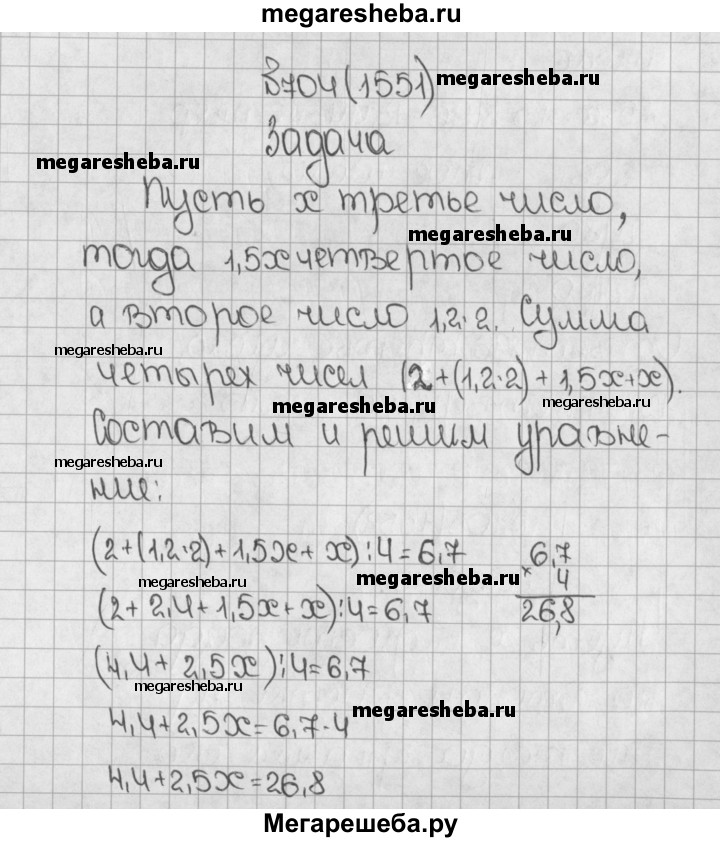 megaresheba.ru
В704(1551) megaresheba.ru
Задача
megaresheba.ru
Пусть x третье число,
megaresheba.ru
тогда 1,5x четвертое число,
а второе число 1,2·2. Сумма
megaresheba.ru
четырех чисел (2+(1,2·2)+1,5x+x).
megaresheba.ru megaresheba.ru
Составим и решим уравне-
megaresheba.ru
ние:
(2+(1,2·2)+1,5x+x):4=6,7 6,7
megaresheba.ru megaresheba.ru × 4
(2+2,4+1,5x+x):4=6,7 26,8
(4,4+2,5x):4=6,7
megaresheba.ru
4,4+2,5x=6,7·4 megaresheba.ru
4,4+2,5x=26,8
Мегарешеба.ру